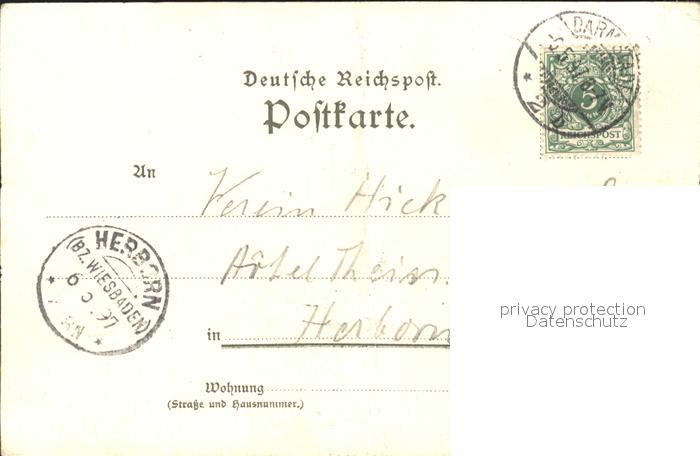 Deutsche Reichspost.
Postkarte.
DARM
5
REICHSPOST
An
Verein Hick
Hôtel Theiss
in Herborn
HERBORN
(BZ. WIESBADEN)
6 5 97
Wohnung
(Straße und Hausnummer.)
privacy protection
Datenschutz